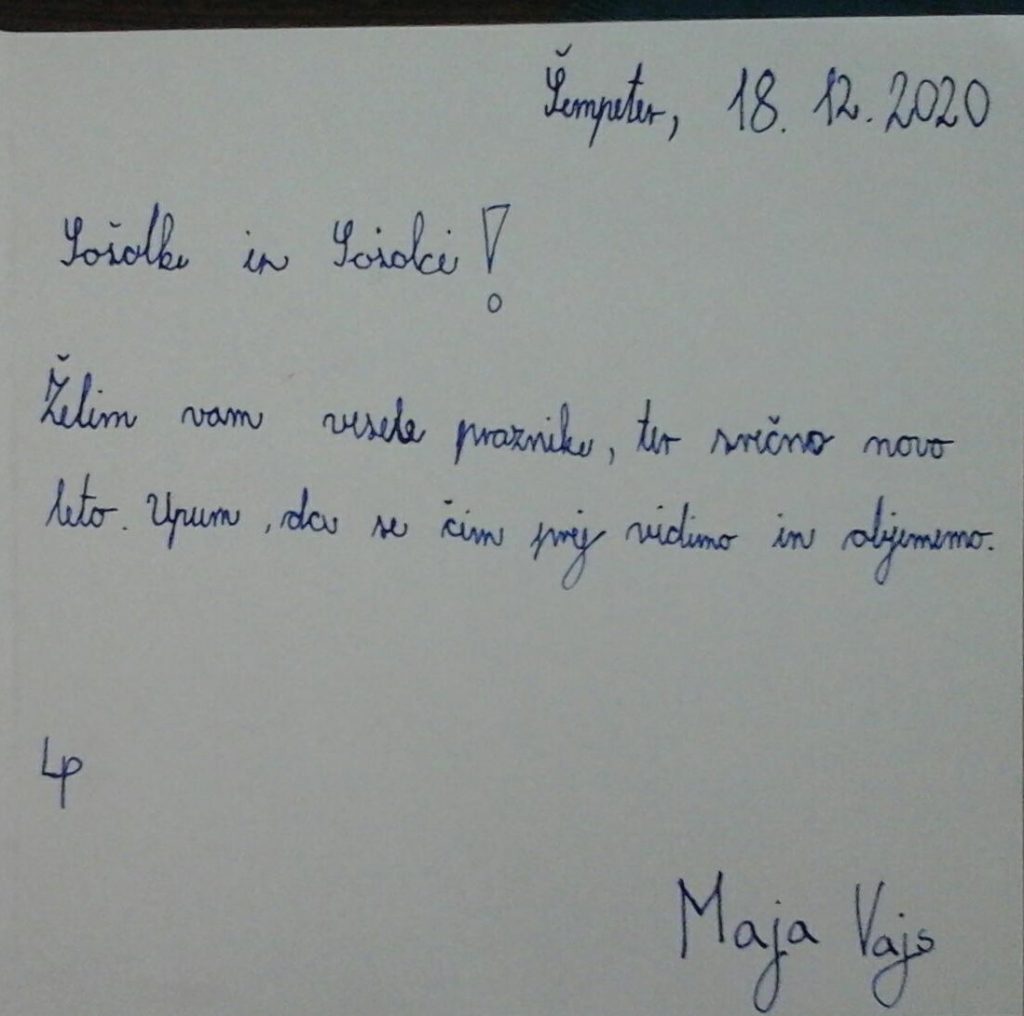 Šempeter, 18. 12. 2020
Sošolke in Sošolci!
Želim vam vesele praznike, ter srečno novo
leto. Upam, da se čim prej vidimo in objememo.
Lp
Maja Vajs